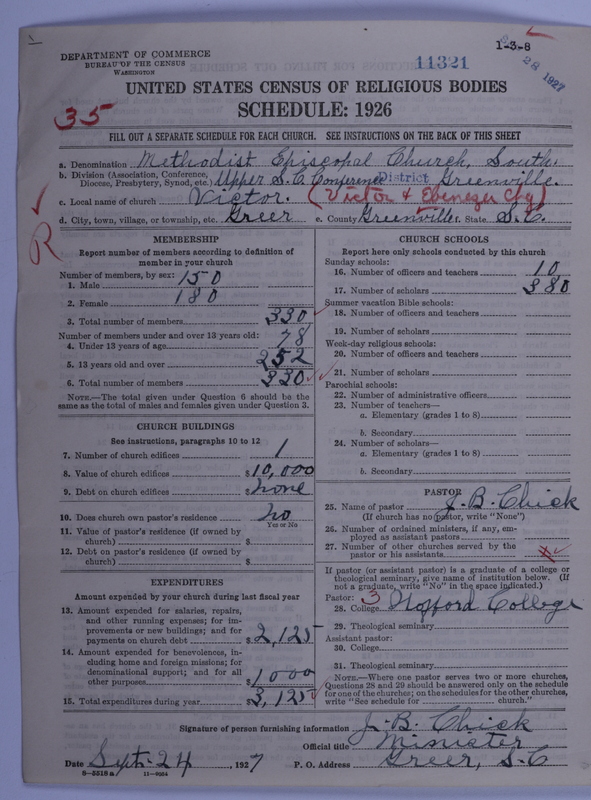 1-3-8
DEPARTMENT OF COMMERCE
BUREAU OF THE CENSUS
WASHINGTON
11321
28 1927
UNITED STATES CENSUS OF RELIGIOUS BODIES
SCHEDULE: 1926
35
FILL OUT A SEPARATE SCHEDULE FOR EACH CHURCH. SEE INSTRUCTIONS ON THE BACK OF THIS SHEET
a. Denomination Methodist Episcopal Church, South
b. Division (Association, Conference, Diocese, Presbytery, Synod, etc.) Upper S.C. Conference District Greenville.
c. Local name of church Victor. (Victor & Ebenezer Chg)
d. City, town, village, or township, etc. Greer e. County Greenville f. State S.C.
R
MEMBERSHIP
Report number of members according to definition of
member in your church
Number of members, by sex:
1. Male 150
2. Female 180
3. Total number of members 330
Number of members under and over 13 years old:
4. Under 13 years of age 78
5. 13 years old and over 252
6. Total number of members 330
NOTE.—The total given under Question 6 should be the
same as the total of males and females given under Question 3.
CHURCH BUILDINGS
See instructions, paragraphs 10 to 12
7. Number of church edifices 1
8. Value of church edifices $10,000
9. Debt on church edifices $none
10. Does church own pastor's residence no
Yes or No
11. Value of pastor's residence (if owned by
church) $
12. Debt on pastor's residence (if owned by
church) $
EXPENDITURES
Amount expended by your church during last fiscal year
13. Amount expended for salaries, repairs,
and other running expenses; for im-
provements or new buildings; and for
payments on church debt $2,125
14. Amount expended for benevolences, in-
cluding home and foreign missions; for
denominational support; and for all
other purposes $1000
15. Total expenditures during year $3,125
CHURCH SCHOOLS
Report here only schools conducted by this church
Sunday schools:
16. Number of officers and teachers 10
17. Number of scholars 380
Summer vacation Bible schools:
18. Number of officers and teachers
19. Number of scholars
Week-day religious schools:
20. Number of officers and teachers
21. Number of scholars
Parochial schools:
22. Number of administrative officers
23. Number of teachers—
a. Elementary (grades 1 to 8)
b. Secondary
24. Number of scholars—
a. Elementary (grades 1 to 8)
b. Secondary
PASTOR
25. Name of pastor J.B. Chick
(If church has no pastor, write "None")
26. Number of ordained ministers, if any, em-
ployed as assistant pastors
27. Number of other churches served by the
pastor or his assistants
If pastor (or assistant pastor) is a graduate of a college or
theological seminary, give name of institution below. (If
not a graduate, write "No" in the space indicated.)
Pastor: 3
28. College Wofford College
29. Theological seminary
Assistant pastor:
30. College
31. Theological seminary
NOTE.—Where one pastor serves two or more churches,
Questions 28 and 29 should be answered only on the schedule
for one of the churches; on the schedules for the other churches,
write "See schedule for church."
Signature of person furnishing information J.B. Chick
Official title Minister
Date Sept-24, 1927 P. O. Address Greer, S.C
8—5518a 11—9054